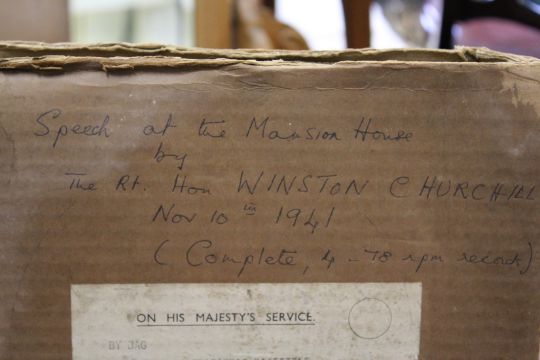 Speech at the Mansion House
by
The Rt. Hon WINSTON CHURCHILL
Nov 10th 1941
(Complete, 4 - 78 rpm records)
ON HIS MAJESTY'S SERVICE.
BY